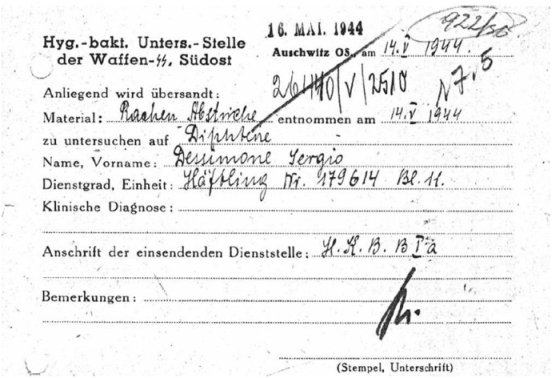 16. MAI. 1944
922/56
Hyg.-bakt. Unters.-Stelle
der Waffen-ᛋᛋ, Südost
Auschwitz OS., am 14.V 1944.
Anliegend wird übersandt:
26440/V/2510
Material: Rachen Abstriche entnommen am 14.V 1944
zu untersuchen auf Diphterie
Name, Vorname: Dessimone Sergio
Dienstgrad, Einheit: Häftling Nr. 179614 Bl. 11.
Klinische Diagnose:
Anschrift der einsendenden Dienststelle: H.K.B. B II a
Bemerkungen:
(Stempel, Unterschrift)